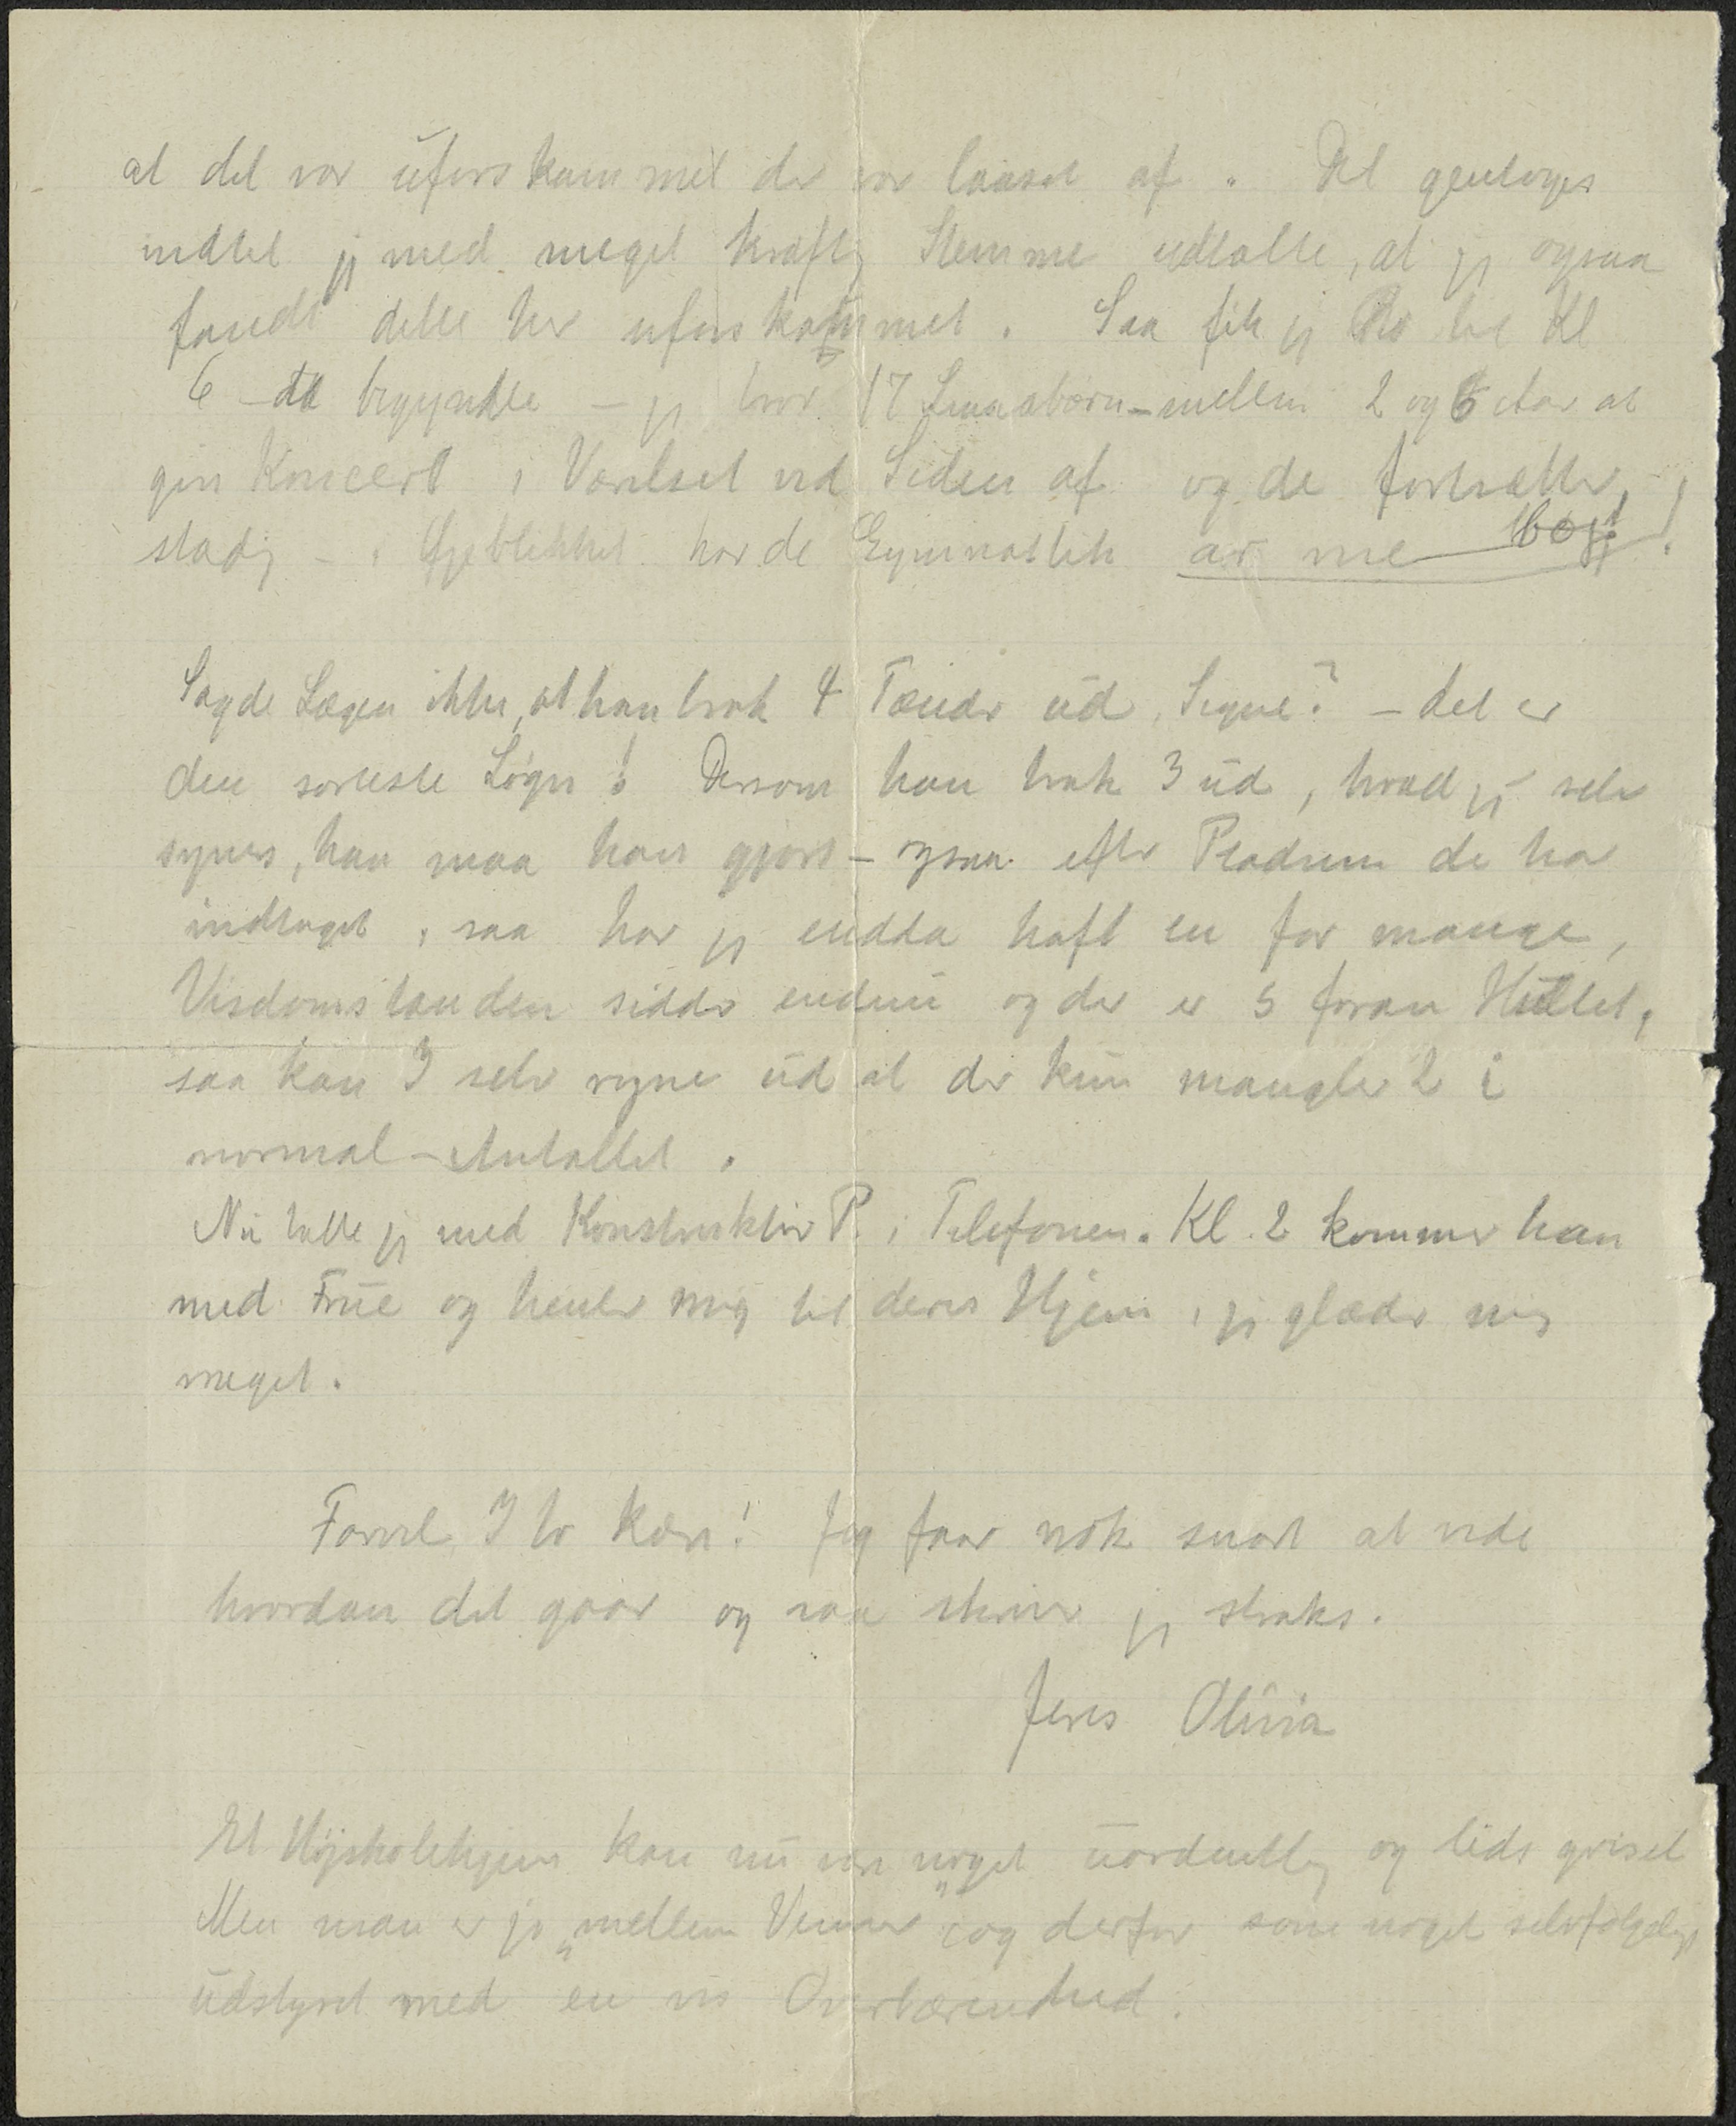 at det var uforskammet der var laaset af. Det gentoges
indtil jeg med meget kraftig Stemme udtalte, at jeg ogsaa
fandt dette her uforskammet. Saa fik jeg Ro til Kl
6 - da begyndte - jeg tror 17 Smaabørn - mellem 2 og 6 Aar at
give Koncert i Værelset ved Siden af og de fortsætter
stadig - i Øjeblikket har de Gymnastik av me
Sagde Lægen ikke, at han trak 4 Tænder ud, Signe? - det er
den sorteste Løgn! Dersom han trak 3 ud, hvad jeg selv
synes, han maa have gjort - ogsaa efter Pladsen de har
indtaget, saa har jeg endda haft en for mange,
Visdomstanden sidder endnu og der er 5 foran Hullet,
saa kan I selv regne ud at der kun mangler 2 i
normal-Antallet.
Nu talte jeg med Konstruktør P. i Telefonen. Kl. 2 kommer han
med Frue og henter mig til deres Hjem, jeg glæder mig
meget.
Farvel I to Kære! Jeg faar nok snart at vide
hvordan det gaar og saa skriver jeg straks.
Jeres Olivia
Et Højskolehjem kan nu være noget uordentlig og lidt griset
Men man er jo "mellem Venner" og derfor som noget selvfølgeligt
udstyret med en vis Overbærenhed.